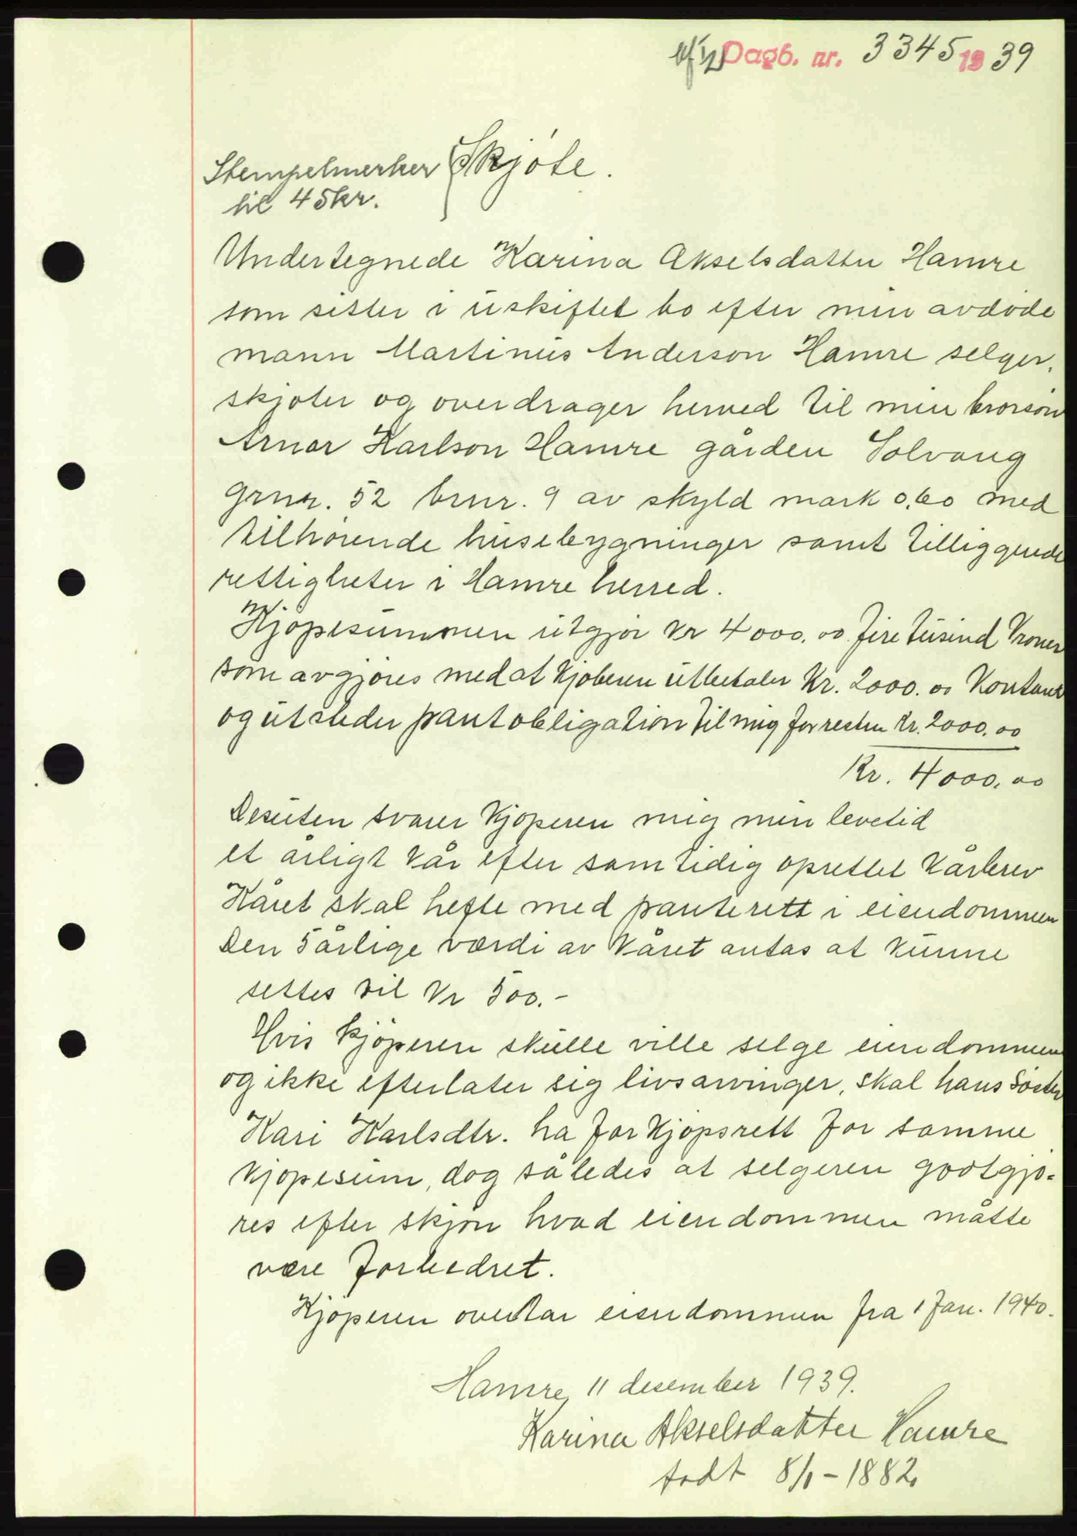 Dagb. nr. 3345 1939
Skjöte.
Stempelmerker
til 45 kr.
Undertegnede Karina Akselsdatter Hamre
som sitter i uskiftet bo efter min avdöde
mann Martinus Anderson Hamre selger,
skjöter og overdrager herved til min brorsön
Arnor Karlson Hamre gården Solvang
grnr. 52 brnr. 9 av skyld mark 0,60 med
tilhörende husebygninger samt tilliggende
rettigheter i Hamre herred.
Kjöpesummen utgjör Kr 4000.00 fire tusind Kroner
som avgjöres med at Kjöberen utbetaler Kr. 2000.00 Kontant
og utsteder pantobligation til mig for resten Kr. 2000.00
Kr. 4000.00
Desuten svarer Kjöperen mig min levetid
et årligt Kår efter samtidig oprettet Kårbrev
Kåret skal hefte med panterett i eiendommen
Den 5 årlige værdi av Kåret antas at Kunne
settes til Kr 500.-
Hvis Kjöperen skulle ville selge eiendommen
og ikke efterlater sig livsarvinger, skal hans Söster
Kari Karlsdtr. ha forkjöpsrett for samme
Kjöpesum, dog således at selgeren godtgjö-
res efter skjön hvad eiendommen måtte
være forbedret.
Kjöperen overtar eiendommen fra 1 Jan. 1940.
Hamre, 11 desember 1939.
Karina Akselsdatter Hamre
födt 8/1-1882.